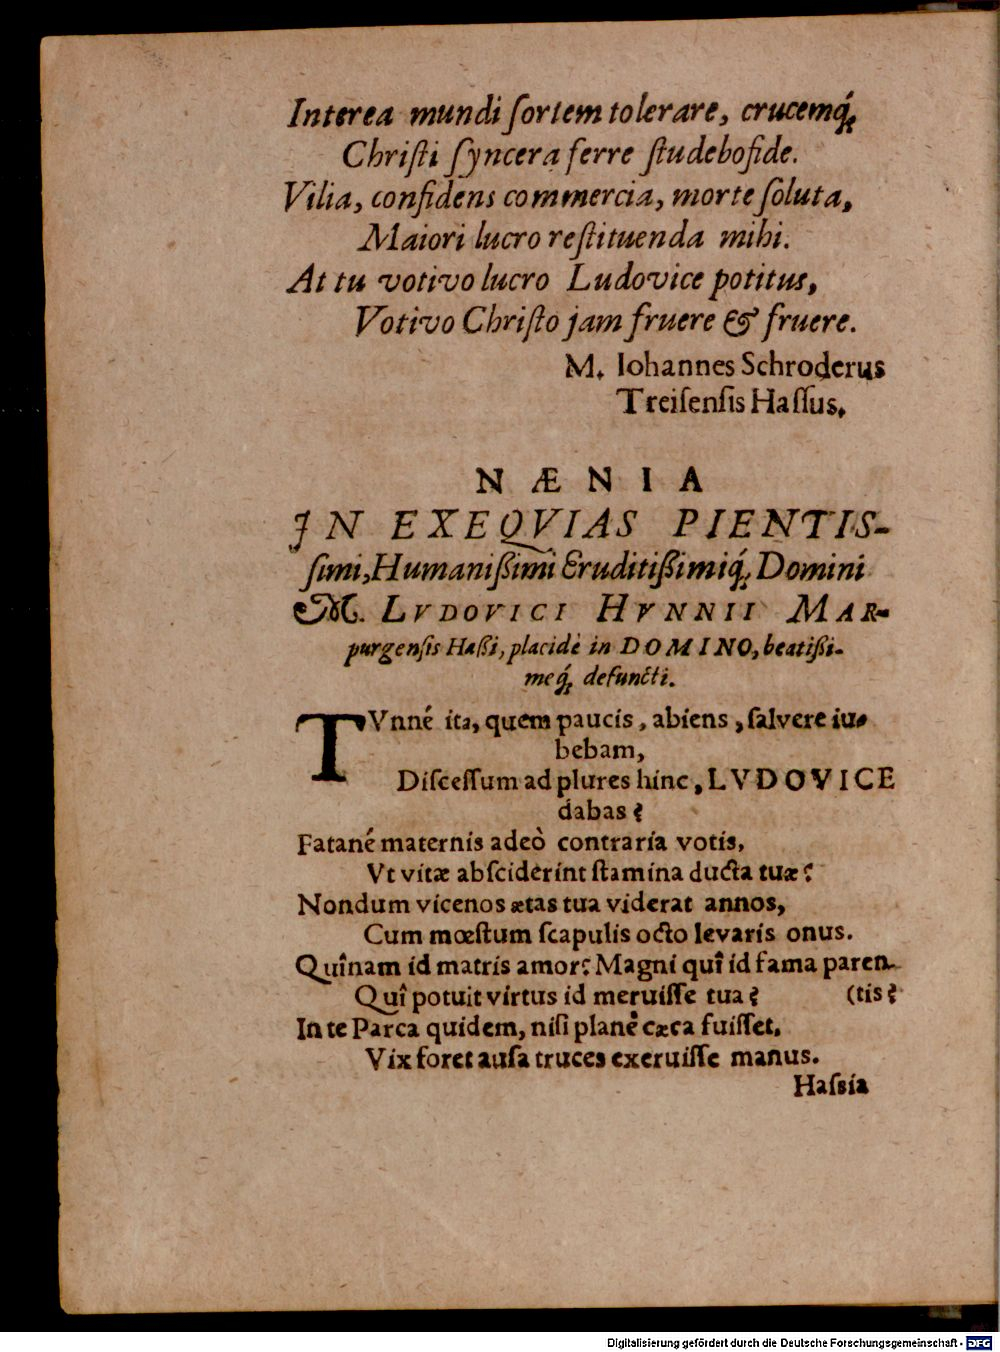 Interea mundi ſortem tolerare, crucemq́;
Chriſti ſyncera ferre ſtudebo fide.
Vilia, confidens commercia, morte ſoluta,
Maiori lucro reſtituenda mihi.
At tu votivo lucro Ludovice potitus,
Votivo Chriſto jam fruere & fruere.
M. Iohannes Schroderus
Treiſenſis Haſſus.
NÆNIA
IN EXEQVIAS PIENTIS-
ſimi, Humaniſſimi Eruditiſſimiq́; Domini
M. LVDOVICI HVNNII MAR-
purgenſis Haſſi, placidè in DOMINO, beatiſſi-
meq́; defuncti.
TVnné ita, quem paucis, abiens, ſalvere iu-
bebam,
Diſceſſum ad plures hinc, LVDOVICE
dabas?
Fatané maternis adeò contraria votis,
Vt vitæ abſciderint ſtamina ducta tuæ?
Nondum vicenos ætas tua viderat annos,
Cum mœſtum ſcapulis octo levaris onus.
Quînam id matris amor? Magni quî id fama paren-
Quî potuit virtus id meruiſſe tua? (tis?
In te Parca quidem, niſi planè cæca fuiſſet,
Vix foret auſa truces exeruiſſe manus.
Haſsia
Digitalisierung gefördert durch die Deutsche Forschungsgemeinschaft - DFG